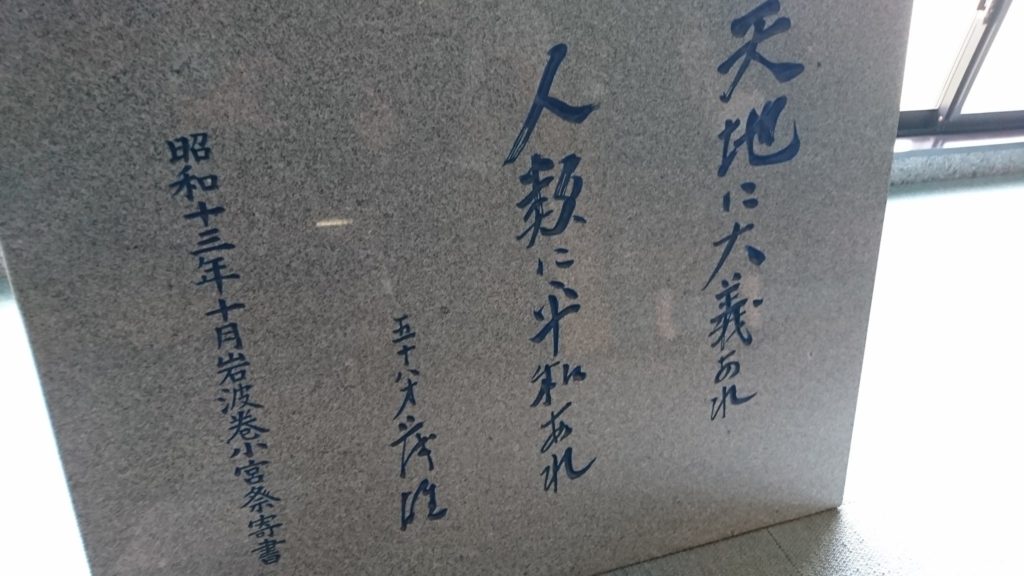 天地に大義あれ
人類に平和あれ
五十八才 茂雄
昭和十三年十月岩波巻小宮祭寄書